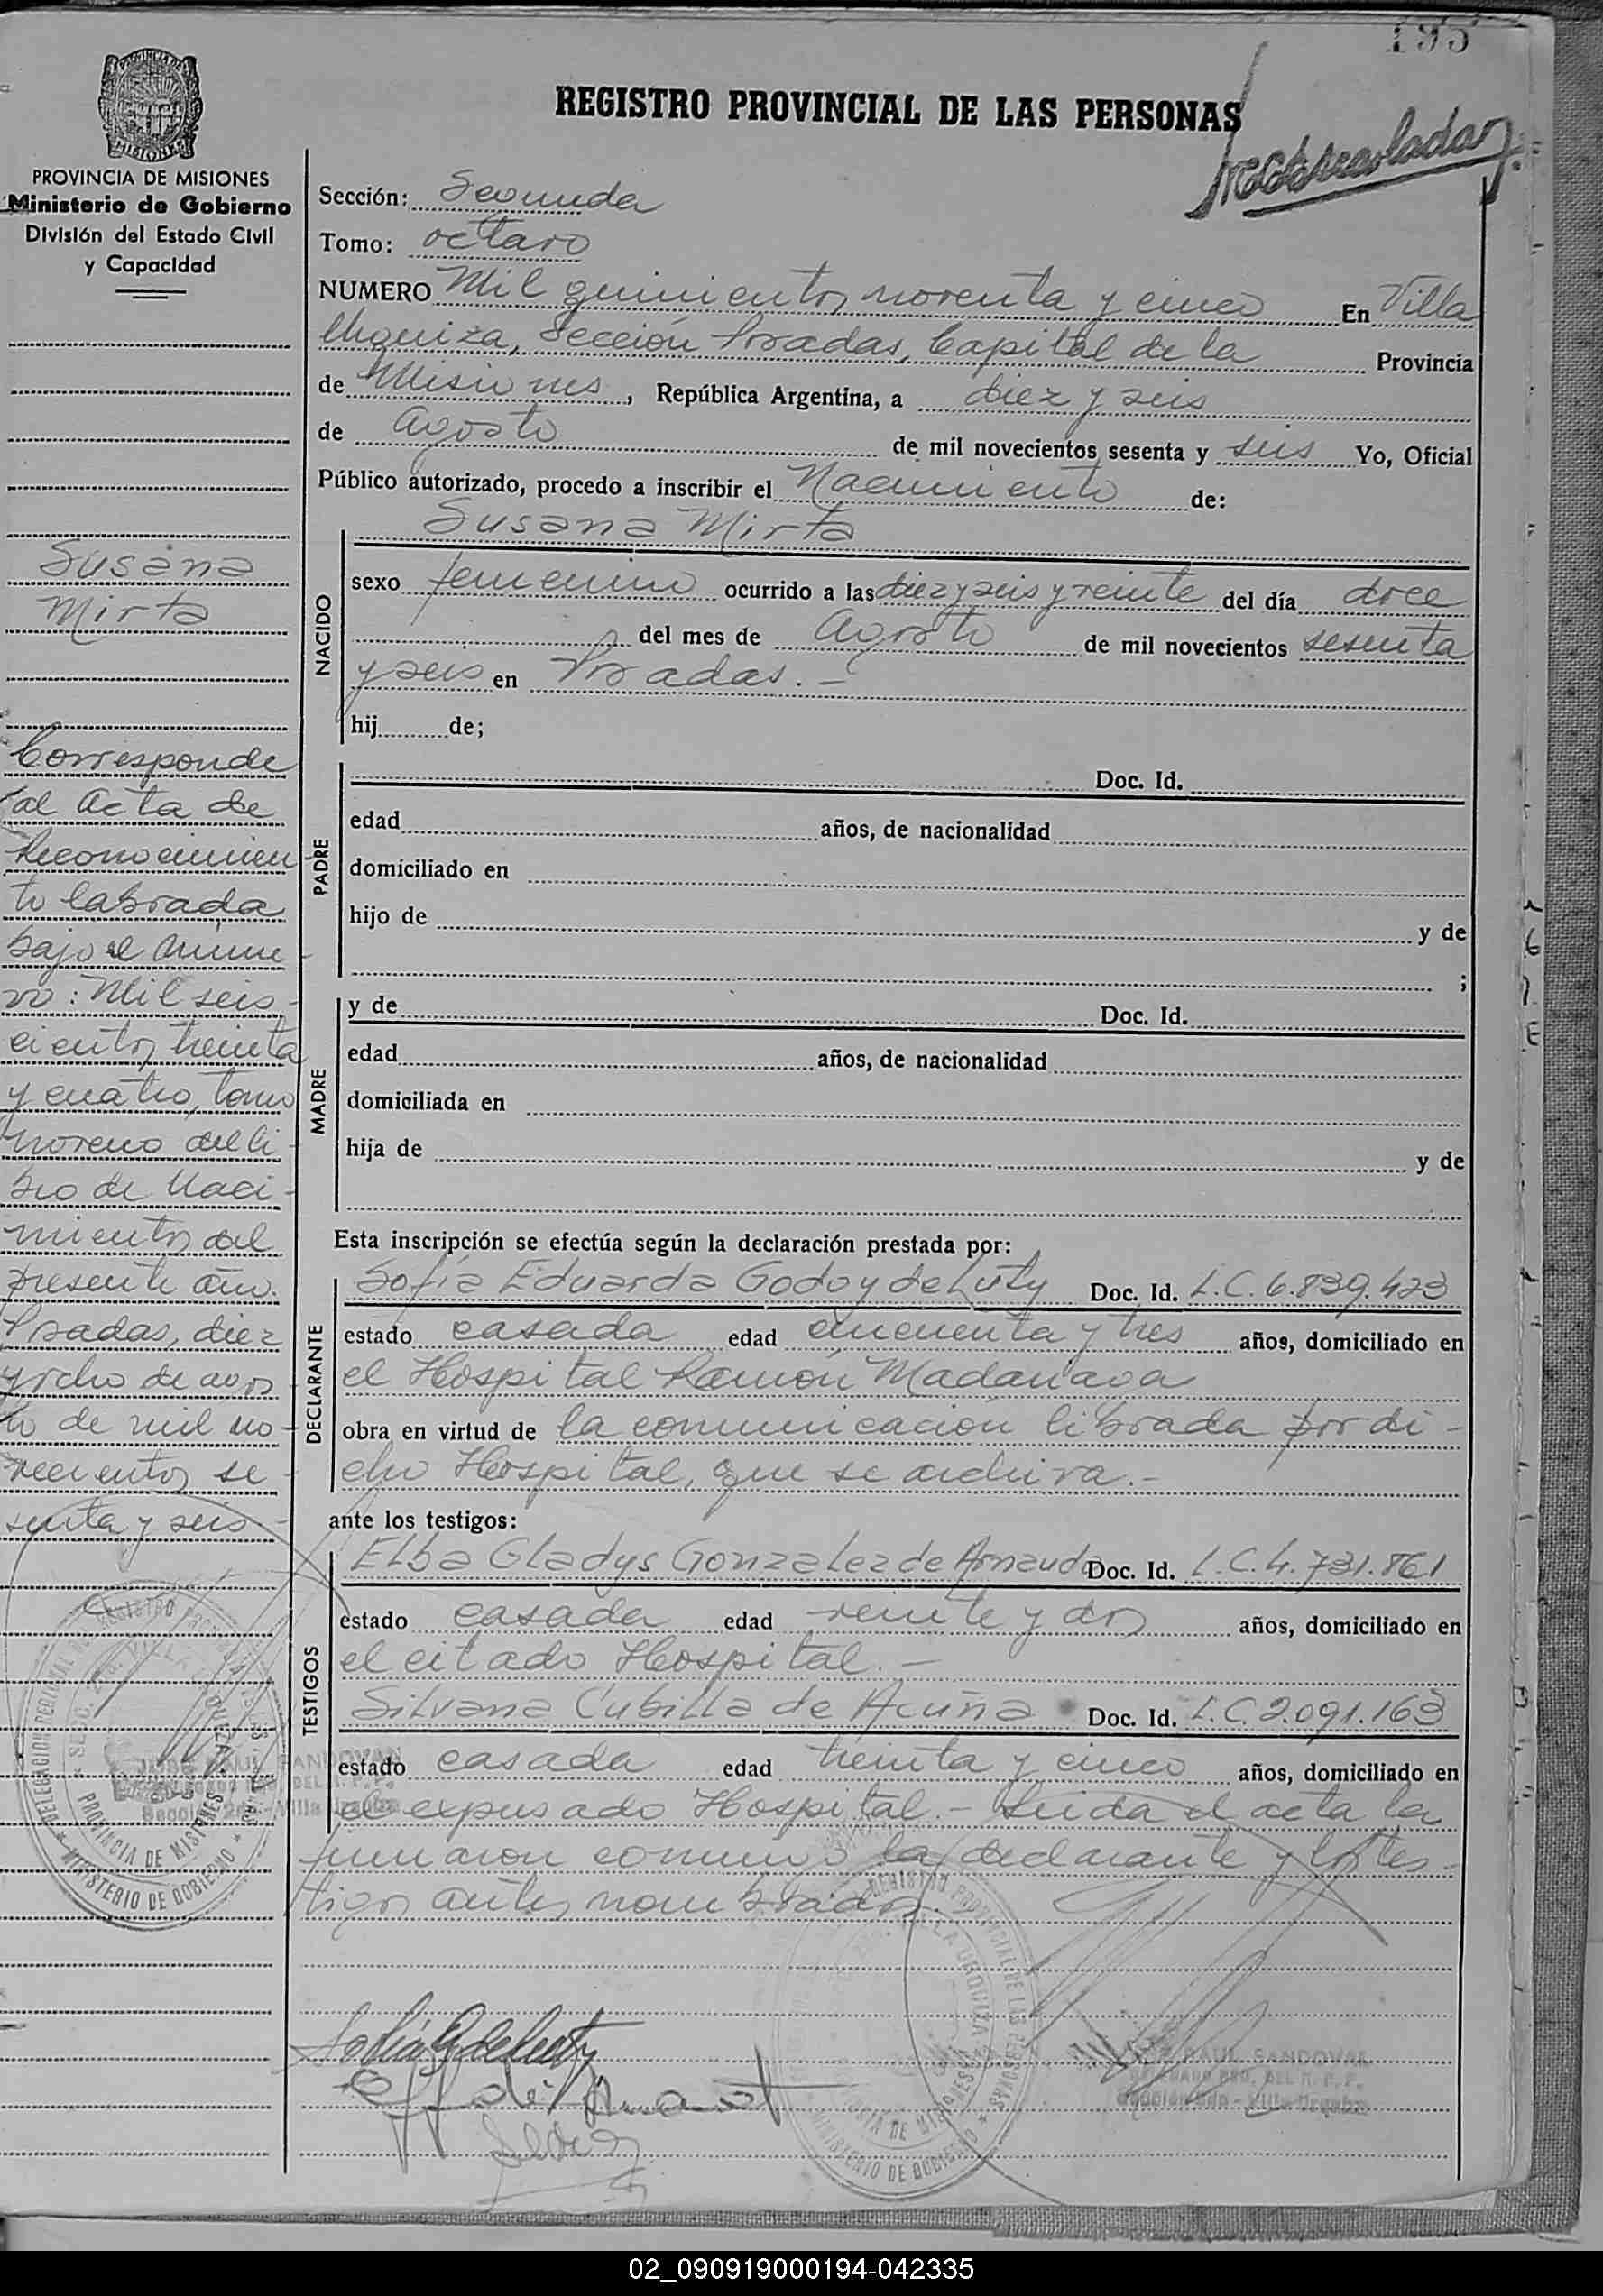 195
REGISTRO PROVINCIAL DE LAS PERSONAS
MISIONES
PROVINCIA DE MISIONES
Ministerio de Gobierno
División del Estado Civil
y Capacidad
Susana
Mirta
Corresponde
al Acta de
Reconocimien
to labrada
bajo el núme
ro: Mil seis
cientos treinta
y cuatro, tomo
noveno del li-
bro de Naci-
mientos del
presente año.
Posadas, diez
y ocho de agos
to de mil no-
vecientos se-
senta y seis
Sección: Segunda
Tomo: octavo
NUMERO Mil quinientos noventa y cinco En Villa
Urquiza, Sección Posadas, Capital de la Provincia
de Misiones, República Argentina, a diez y seis
de Agosto de mil novecientos sesenta y seis Yo, Oficial
Público autorizado, procedo a inscribir el Nacimiento de:
Susana Mirta
NACIDO
sexo femenino ocurrido a las diez y seis y veinte del día doce
del mes de Agosto de mil novecientos sesenta
y seis en Posadas.-
hij de;
PADRE
Doc. Id.
edad años, de nacionalidad
domiciliado en
hijo de y de
;
MADRE
y de Doc. Id.
edad años, de nacionalidad
domiciliada en
hija de y de
Esta inscripción se efectúa según la declaración prestada por:
DECLARANTE
Sofía Eduarda Godoy de Luty Doc. Id. L.C. 6.839.423
estado casada edad cincuenta y tres años, domiciliado en
el Hospital Ramón Madariaga
obra en virtud de la comunicación librada por di-
cho Hospital, que se archiva.-
ante los testigos:
TESTIGOS
Elba Gladys Gonzalez de Arnaudo Doc. Id. L.C. 4.731.861
estado casada edad veinte y dos años, domiciliado en
el citado Hospital.-
Silvana Cubilla de Acuña Doc. Id. L.C. 2.091.163
estado casada edad treinta y cinco años, domiciliado en
el expresado Hospital.- Leida el acta la
firmaron conmigo la declarante y los tes-
tigos antes nombrados.
RAUL SANDOVAL
PROVINCIA DE MISIONES
MINISTERIO DE GOBIERNO
02_090919000194-042335